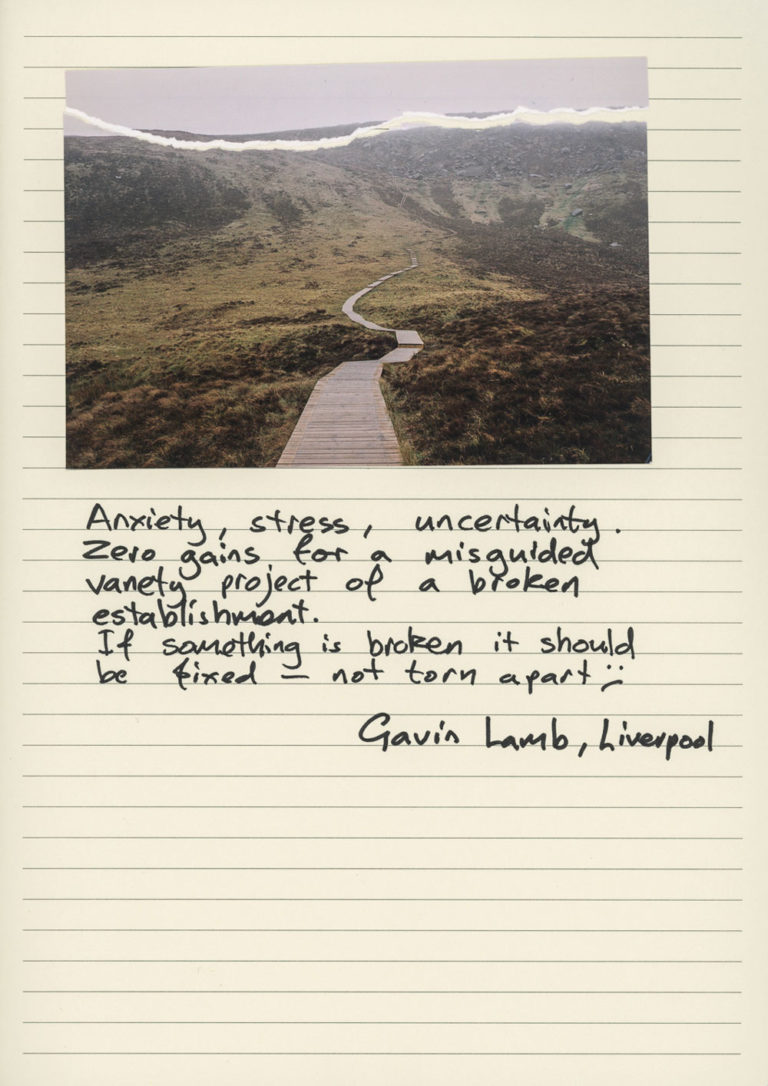 Anxiety, stress, uncertainty.
Zero gains for a misguided
vanety project of a broken
establishment.
If something is broken it should
be fixed – not torn apart :(
Gavin Lamb, Liverpool